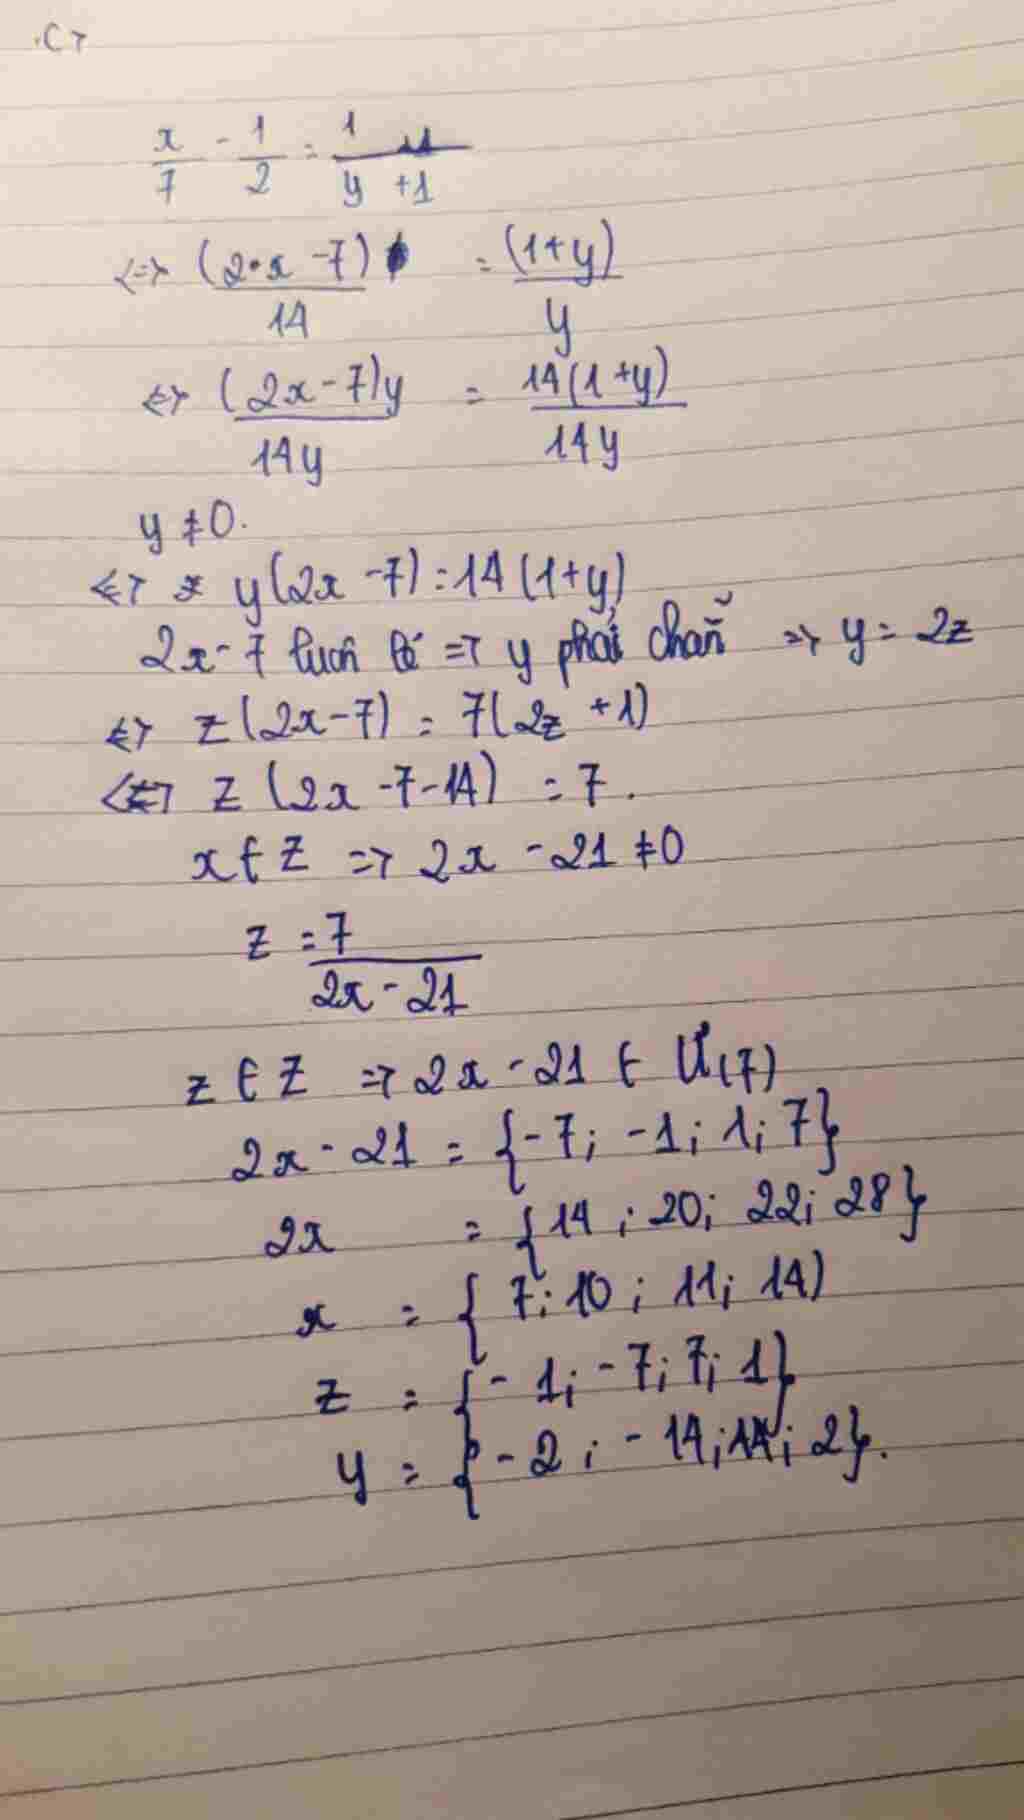 C7
x/7 - 1/2 = 1/y + 1
<=> (2·x - 7)/14 = (1+y)/y
<=> (2x - 7)y/14y = 14(1+y)/14y
y ≠ 0.
<=> y(2x - 7) = 14(1+y)
2x - 7 luôn lẻ => y phải chẵn => y = 2z
<=> z(2x - 7) = 7(2z + 1)
<=> z(2x - 7 - 14) = 7.
x ∈ Z => 2x - 21 ≠ 0
z = 7/2x - 21
z ∈ Z => 2x - 21 ∈ Ư(7)
2x - 21 = {-7; -1; 1; 7}
2x = {14; 20; 22; 28}
x = {7; 10; 11; 14)
z = {-1; -7; 7; 1}
y = {-2; -14; 14; 2}.